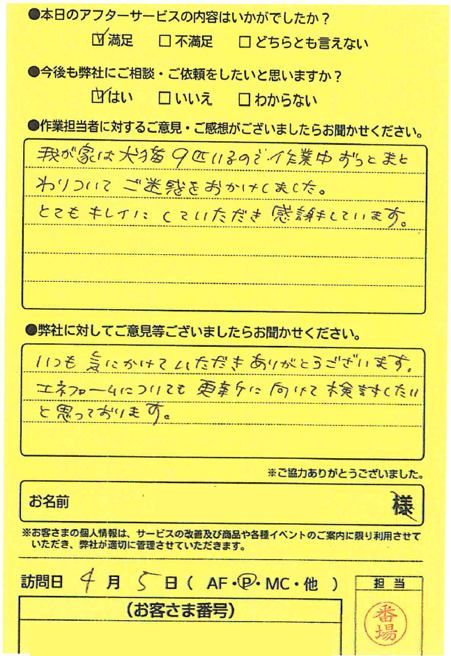 ●本日のアフターサービスの内容はいかがでしたか？
☑満足 □不満足 □どちらとも言えない
●今後も弊社にご相談・ご依頼をしたいと思いますか？
☑はい □いいえ □わからない
●作業担当者に対するご意見・ご感想がございましたらお聞かせください。
我が家は犬猫9匹いるので作業中ずっとまと
わりついてご迷惑をおかけしました。
とてもキレイにしていただき感謝しています。
●弊社に対してご意見等ございましたらお聞かせください。
いつも気にかけていただきありがとうございます。
エネファームについても更新に向けて検討したい
と思っております。
※ご協力ありがとうございました。
お名前 様
※お客さまの個人情報は、サービスの改善及び商品や各種イベントのご案内に限り利用させて
いただき、弊社が適切に管理させていただきます。
訪問日 4月5日（ AF・Ⓟ・MC・他 ）
担当
（お客さま番号）
番場